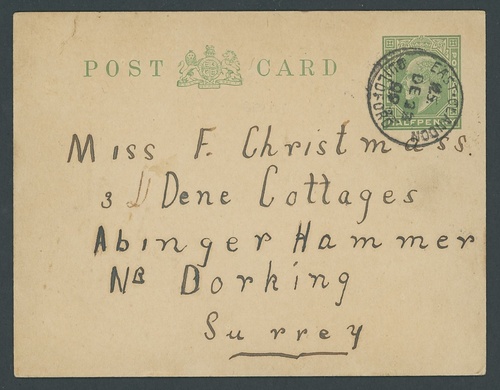 POST CARD
EAST CLANDON
DE 27
GUILDFORD
HALFPENNY
Miss F. Christmass.
3 Dene Cottages
Abinger Hammer
NR Dorking
Surrey